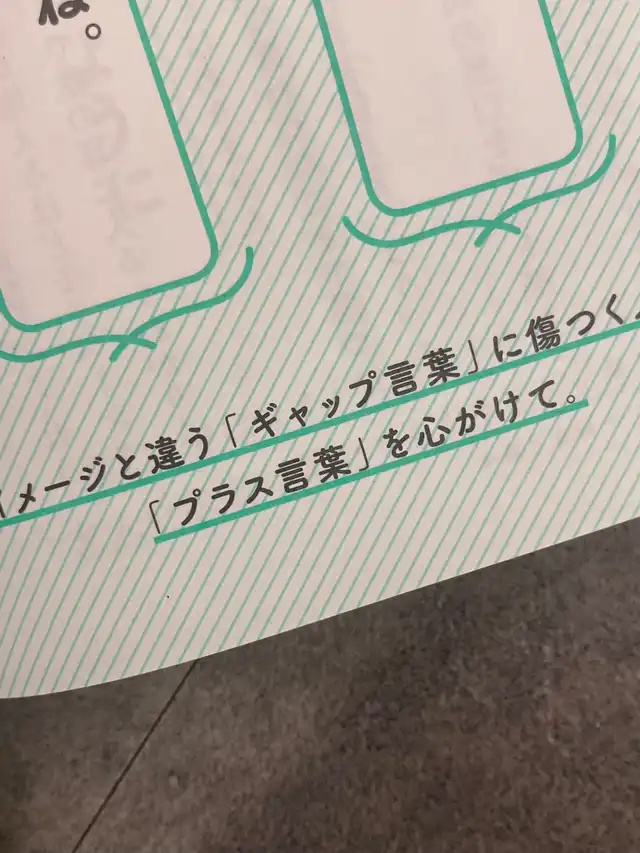 ね。
イメージと違う「ギャップ言葉」に傷つく
「プラス言葉」を心がけて。